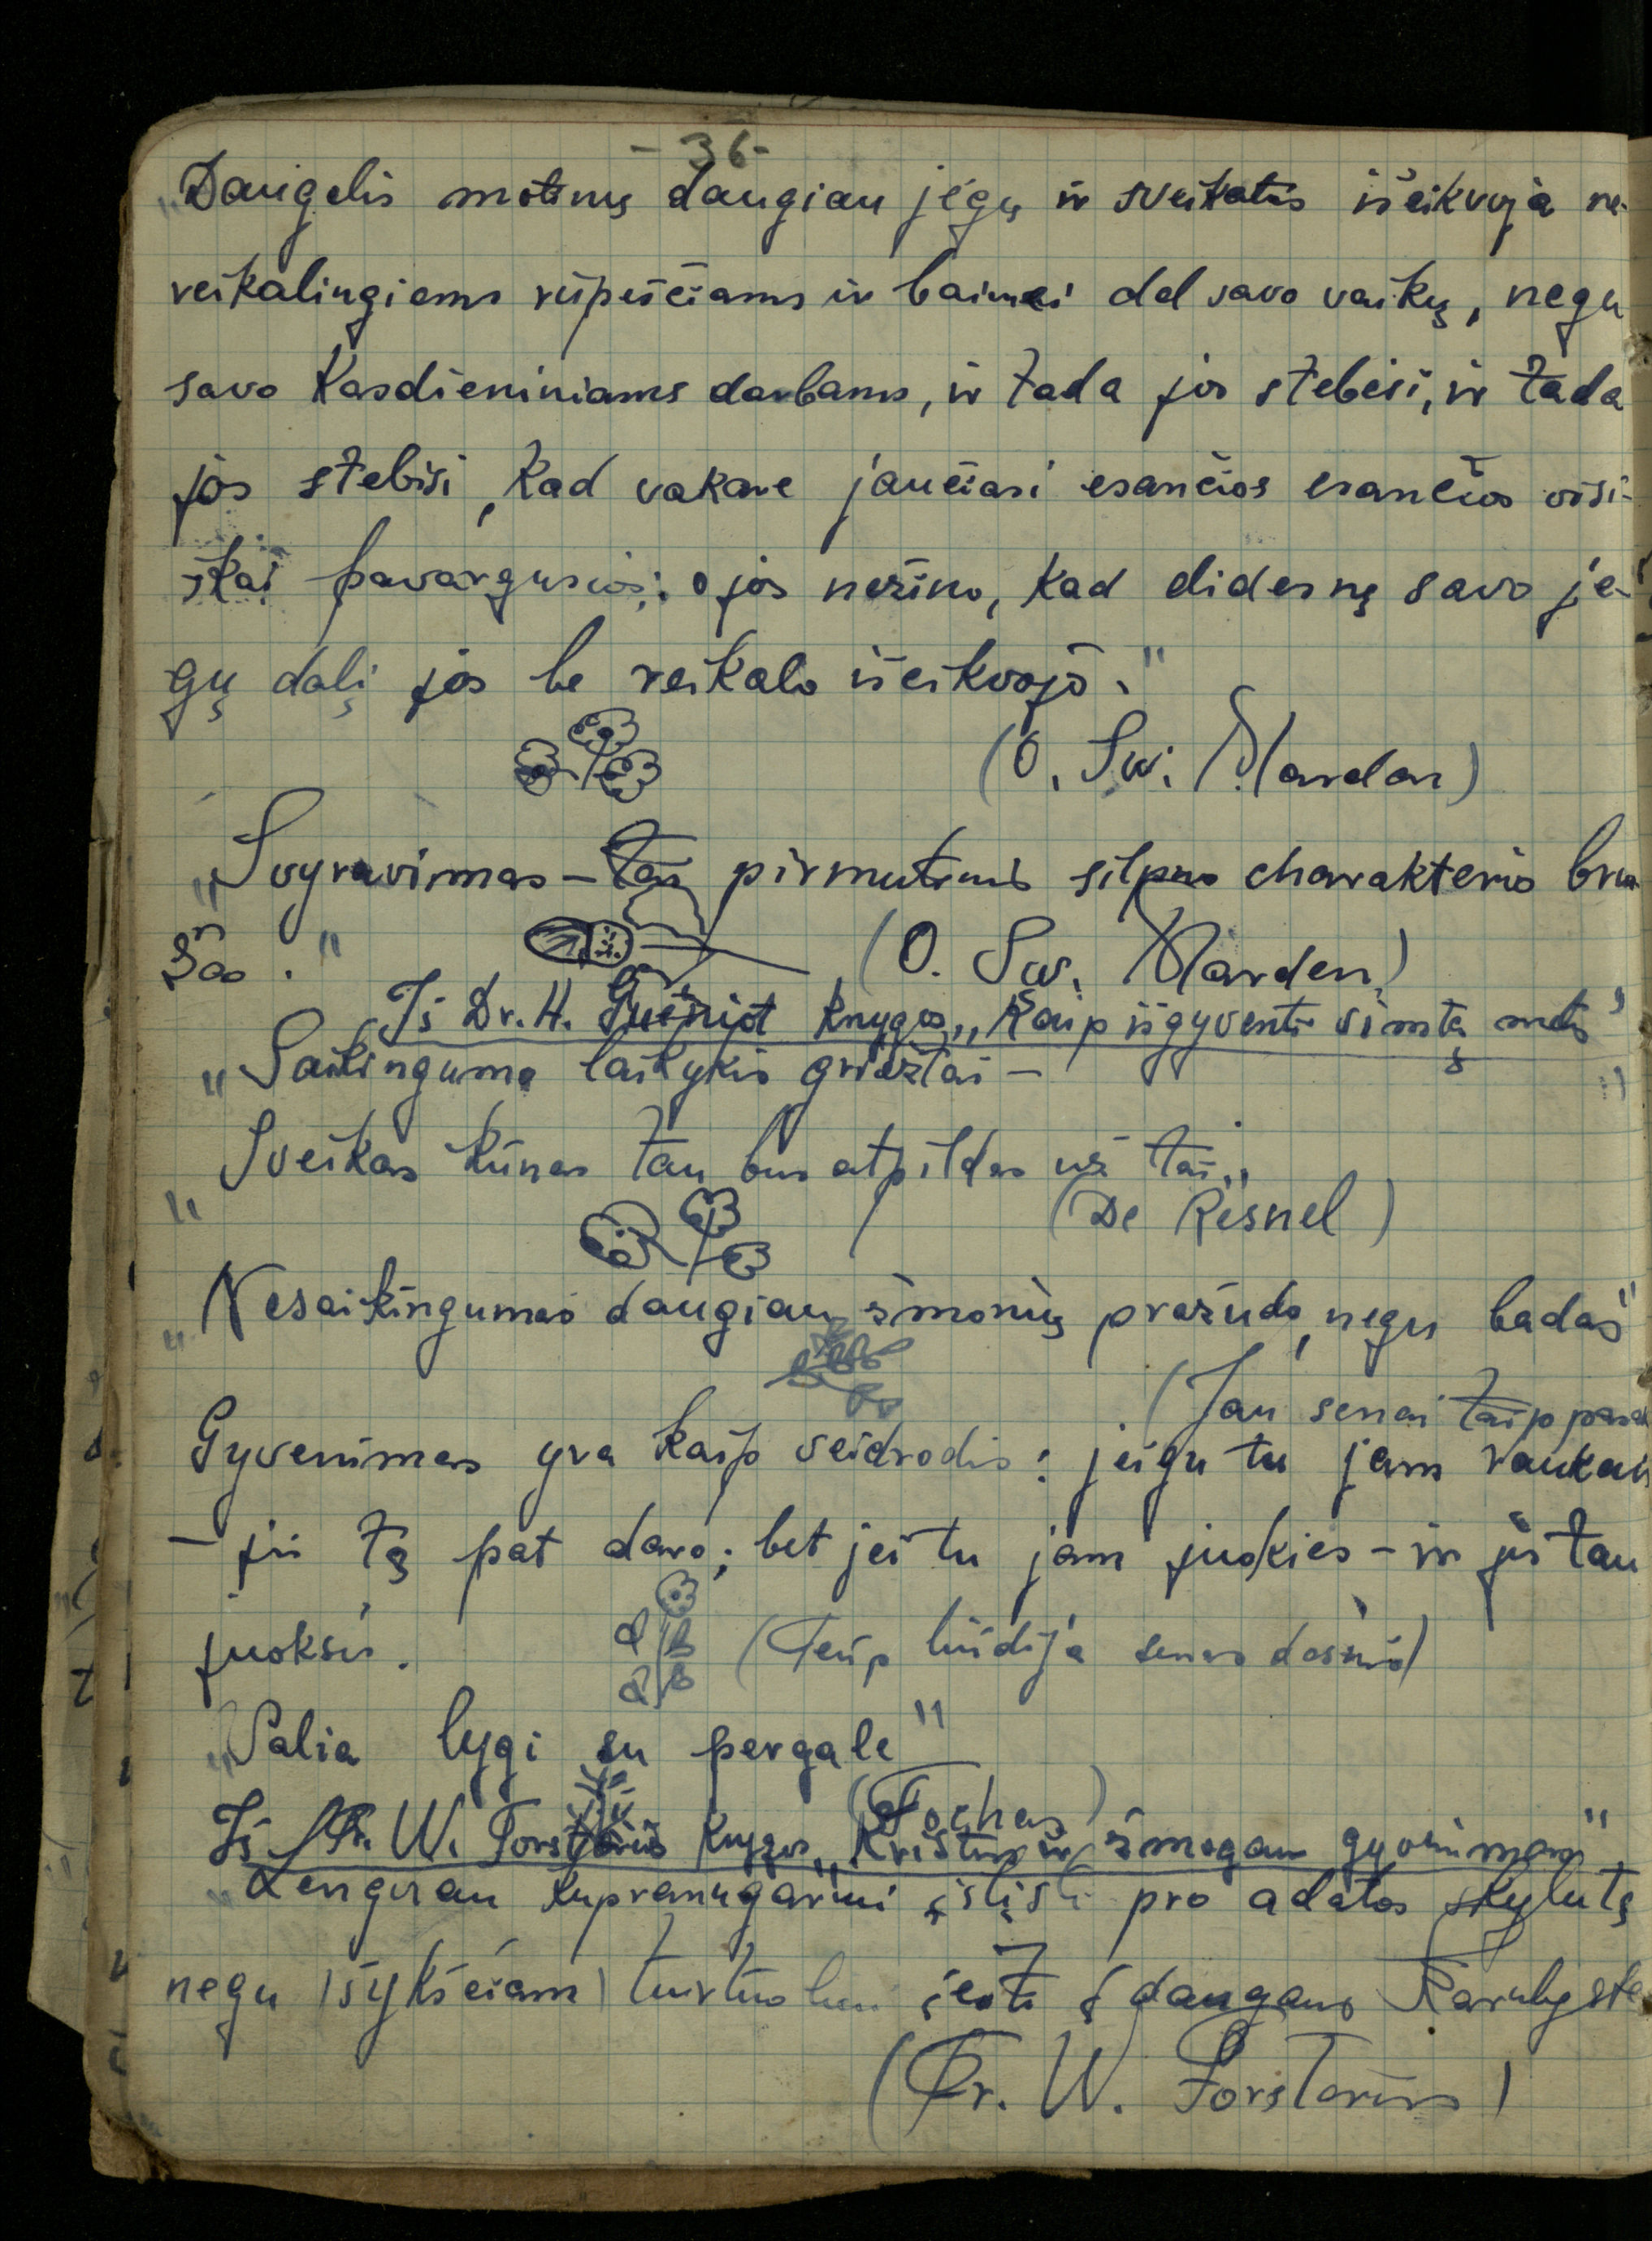 - 36 -
„Daugelis motinų daugiau jėgų ir sveikatos išeikvoja ne-
reikalingiems rūpesčiams ir baimei dėl savo vaikų, negu
savo Kasdieniniams darbams, ir tada jos stebisi, ir tada
jos stebisi, Kad vakare jaučiasi esančios esančios visi-
škai pavargusios; o jos nežino, Kad didesnę savo jė-
gų dalį jos be reikalo išeikvojo."
(O. Sw. Mardan)
„Svyravimas – tai pirmutinis silpno charakterio bruo
žas."
(O. Sw. Marden)
Iš Dr. H. Gueniot knygos „Kaip išgyventi šimtą metų"
„Saikingumo laikykis griežtai –
Sveikas Kūnas tau bus atpildas už tai„
(De Resnel)
„Nesaikingumas daugiau žmonių pražudo, negu badas"
(Jau senai taip
Gyvenimas yra kaip veidrodis: jeigu tu jam raukais
– jis tą pat daro; bet jei tu jam juokies – ir jis tau
juoksis.
(Teip liūdija senas dėsnis)
„Valia lygi su pergale"
(Fochas)
Iš Fr. W. Forsterio Knygos „Kristus ir žmogaus gyvenimas"
„Lengviau kupranugariui įslįsti pro adatos skylutę
negu šykščiam turtuoliui įeiti į dangaus Karalystę
(Fr. W. Forsteris)